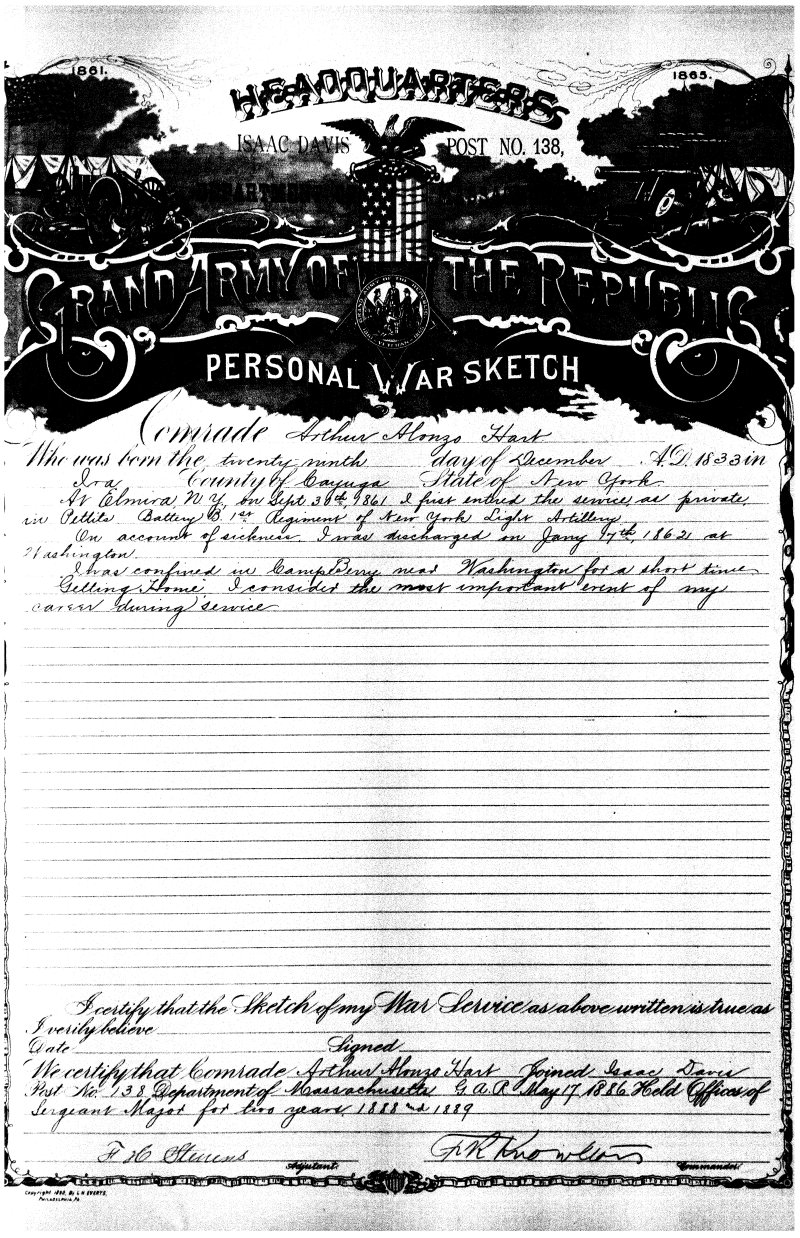 1861.
1865.
HEADQUARTERS
ISAAC DAVIS POST NO. 138,
DEPARTMENT
GRAND ARMY OF THE REPUBLIC
PERSONAL WAR SKETCH
Comrade Arthur Alonzo Hart
Who was born the twenty ninth day of December A.D. 1833 in
Ira County of Cayuga State of New York
At Elmira N.Y. on Sept 30th, 1861 I first entred the service as private
in Pettits Battery B. 1st Regiment of New York Light Artillery
On account of sickness I was discharged on Jany 17th, 1862 at
Washington.
I was confined in Camp Berry near Washington for a short time
Getting Home, I consider the most important event of my
career during service
I certify that the Sketch of my War Service as above written is true as
I verily believe
Date Signed
We certify that Comrade Arthur Alonzo Hart Joined Isaac Davis
Post No. 138 Department of Massachusetts G.A.R. May 17 1886 Held Offices of
Sergeant Major for two years, 1888 nd 1889
F H Stevens
Knowlton
Adjutant.
Commander
Copyright 1880, By L H EVERTS,
PHILADELPHIA, PA.